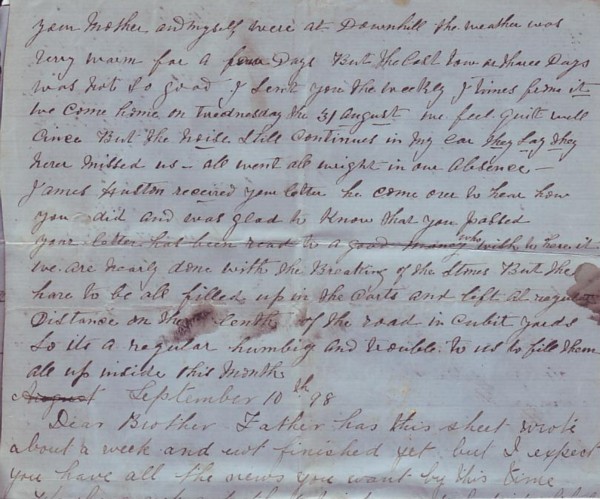 your Mother and myself were at Downhill the weather was
very warm for a few Days But the last tow or three Days
was not so good I sent you the weekly Times from it
we come home on Wednesday the 31 August we feel quit well
since But the noise still continues in my ear they say they
never missed us – all went all wright in our Absence –
James Huston received your letter he come over to hear how
you did and was glad to know that you passed
your letter has been read to a good many who wish to hear it
we are nearly done with the Breaking of the stones But the
have to be all filled up in the carts and left at regular
Distance on the lenth of the road in cubit yards
So its a regular humbig and trouble to us to fill them
all up inside this month
August September 10th 98
Dear Brother Father has this sheet wrote
about a week and not finished yet but I expect
you have all the news you want by this time